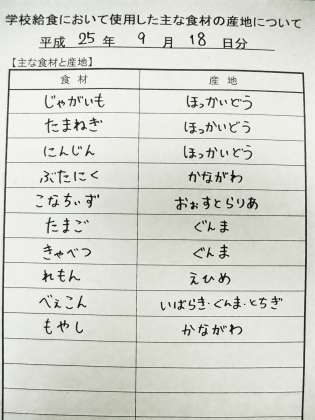 学校給食において使用した主な食材の産地について
平成 25 年 9 月 18 日分
【主な食材と産地】
食材 産地
じゃがいも ほっかいどう
たまねぎ ほっかいどう
にんじん ほっかいどう
ぶたにく かながわ
こなちぃず おぉすとらりあ
たまご ぐんま
きゃべつ ぐんま
れもん えひめ
べぇこん いばらき・ぐんま・とちぎ
もやし かながわ